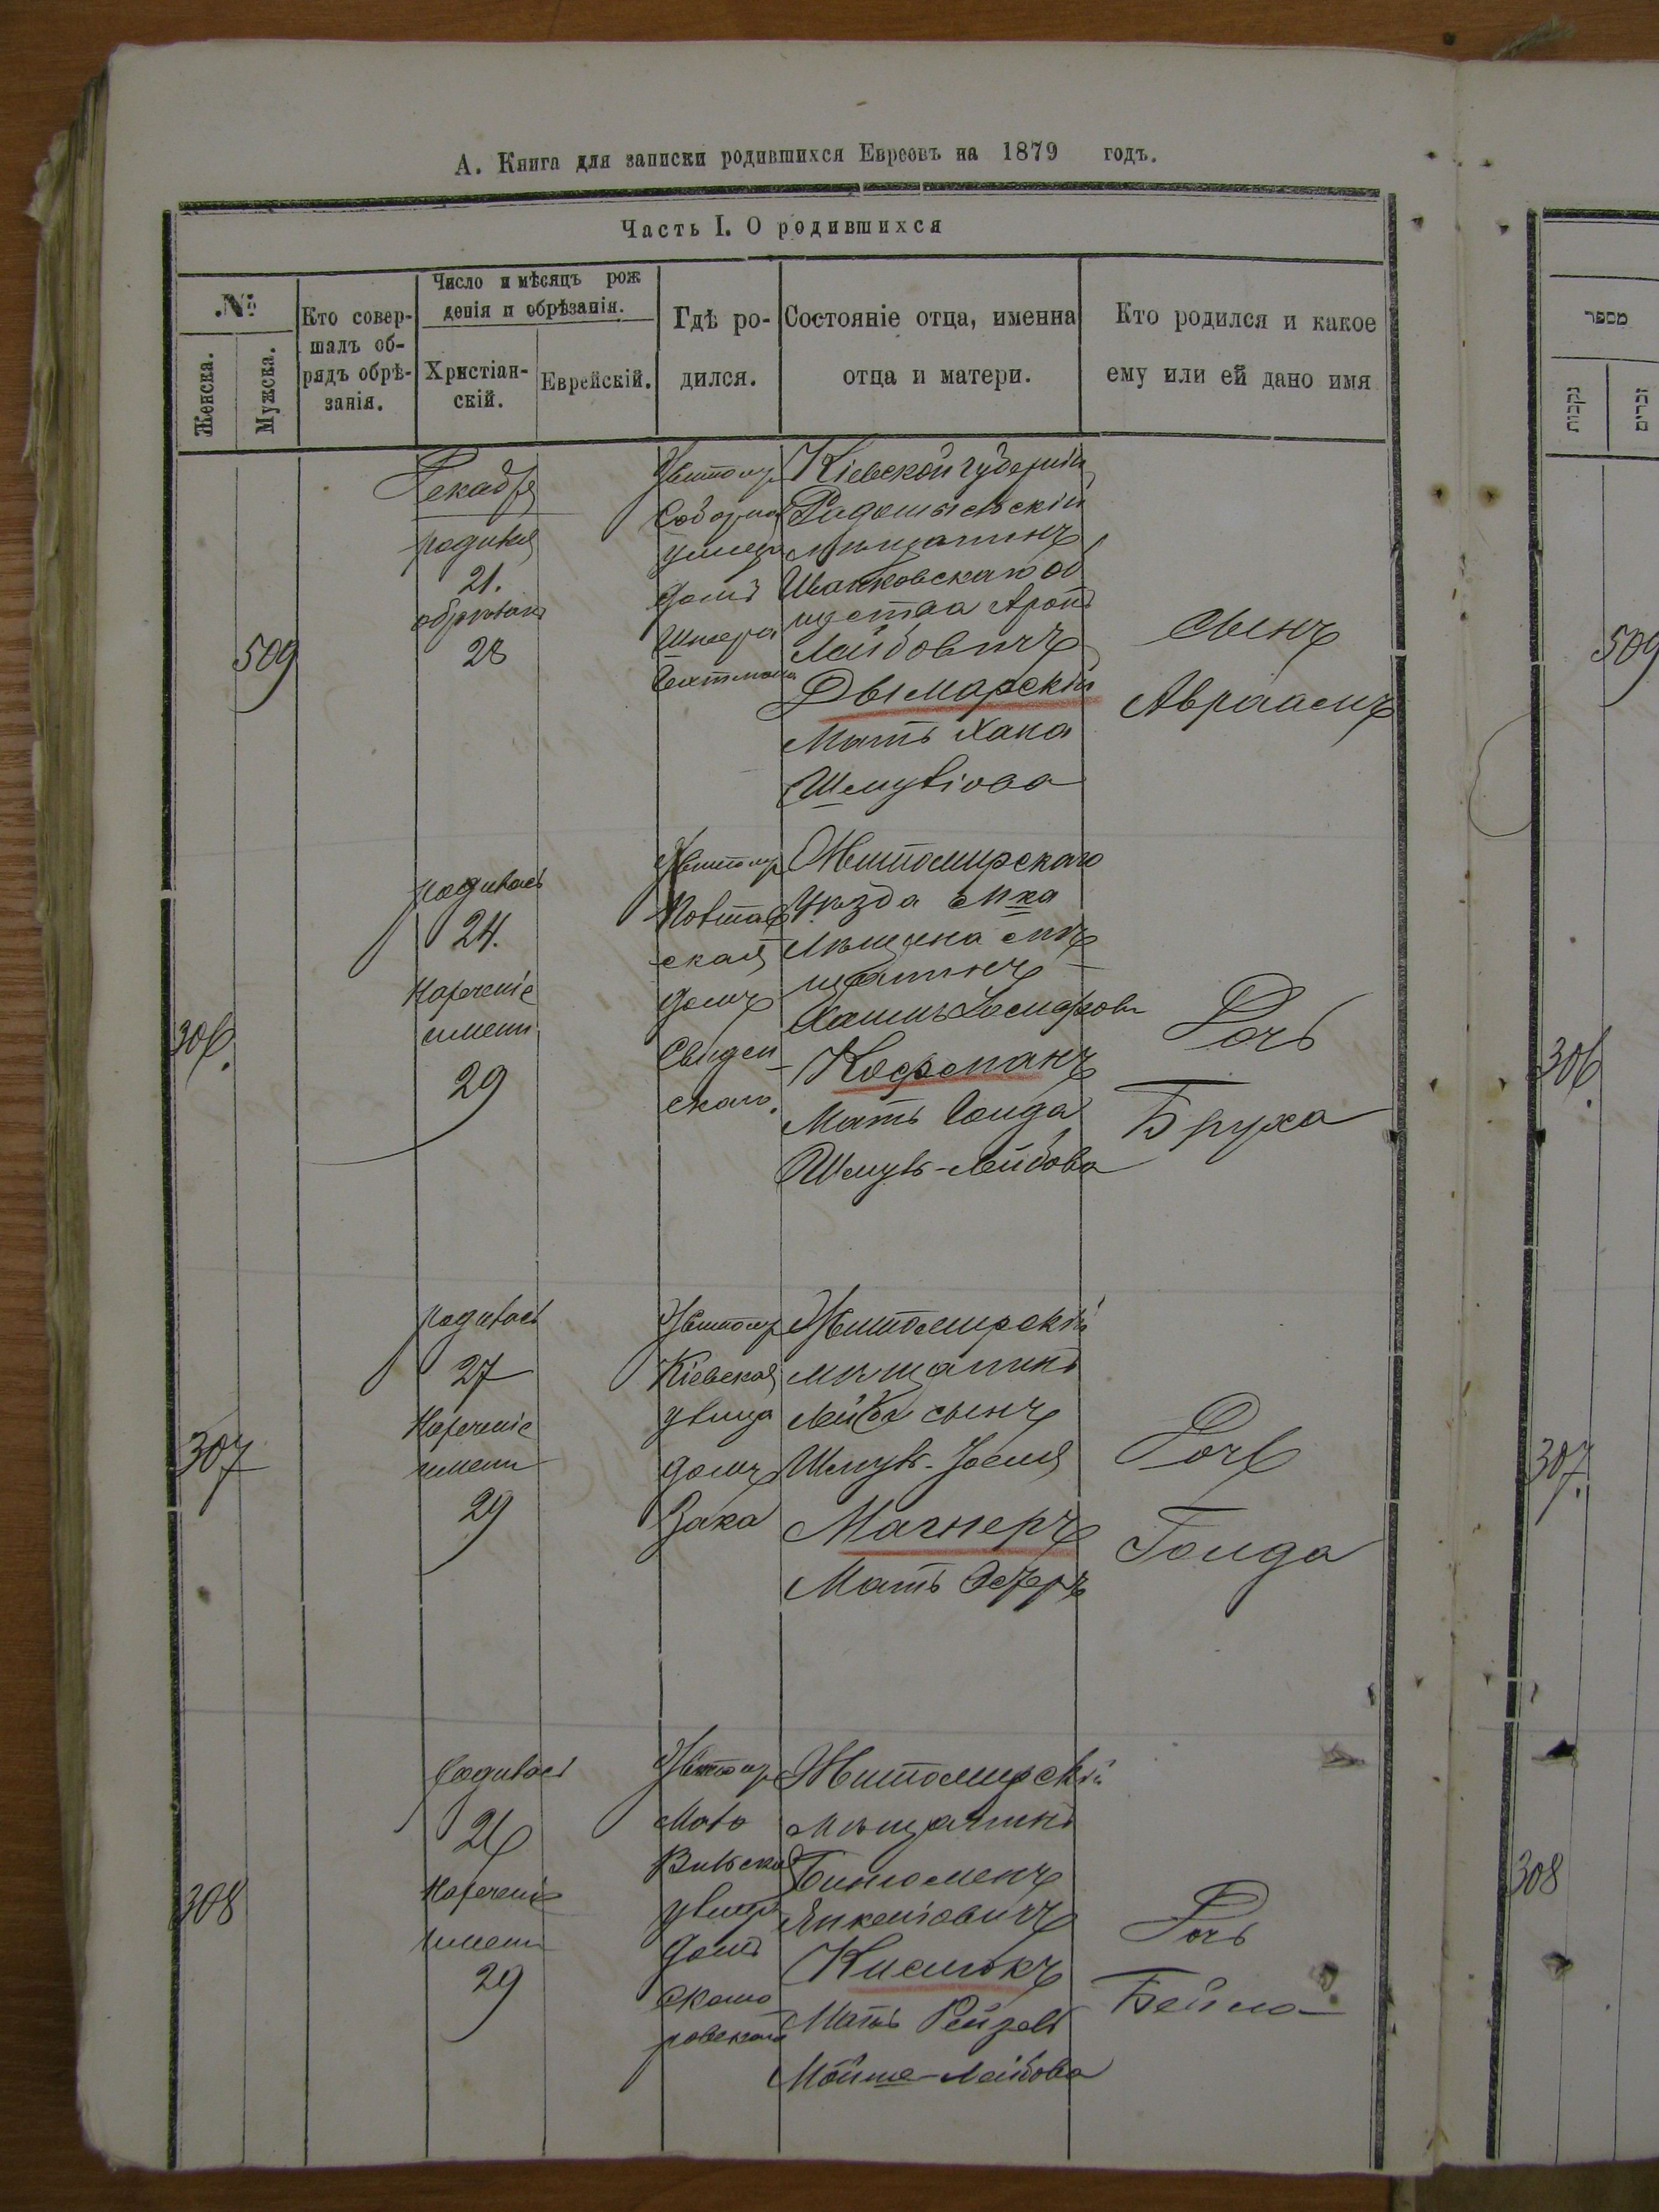 А. Книга для записки родившихся Евреовъ на 1879 годъ.
Часть I. О родившихся
№
Женска.
Мужска.
Кто совер-
шалъ об-
рядъ обрѣ-
занія.
Число и мѣсяцъ рож
денія и обрѣзанія.
Христіан-
скій.
Еврейскій.
Гдѣ ро-
дился.
Состояніе отца, именна
отца и матери.
Кто родился и какое
ему или ей дано имя
מספר
נקבות
זכרים
509
Декабря
родился
21.
обрѣзанъ
28
Житомир
Соборная
улица
домъ
Шмера
Гехтмана
Кіевской губерніи
Радомысльскій
мѣщанинъ
Иванковскаго об
щества Аронъ
Лейбовичъ
Дымарскій
Мать Хана
Шмулiова
сынъ
Авраамъ
509
306.
родилась
24.
Нареченіе
имени
29
Житомир
Полтав
ская
домъ
Свиден
скаго.
Житомирскаго
уѣзда м-ка
Лѣщина мѣ
щанинъ
Хаимъ
Кофманъ
Мать Голда
Шмуль-Лейбова
Дочь
Бруха
306.
307
родилась
27
Нареченіе
имени
29
Житомир
Кіевская
улица
домъ
Зака
Житомирскій
мѣщанинъ
Лейба сынъ
Шмуль-Іосия
Магнеръ
Мать Эстеръ
Дочь
Голда
307.
308
родилась
26
Нареченіе
имени
29
Житомир
Мало
Вильская
улица
домъ
Скомо
ровскаго
Житомирскій
мѣщанинъ
Биниоменъ
Янкелiовичъ
Кислюкъ
Мать Рейзель
Мойше-Лейбова
Дочь
Бейла
308